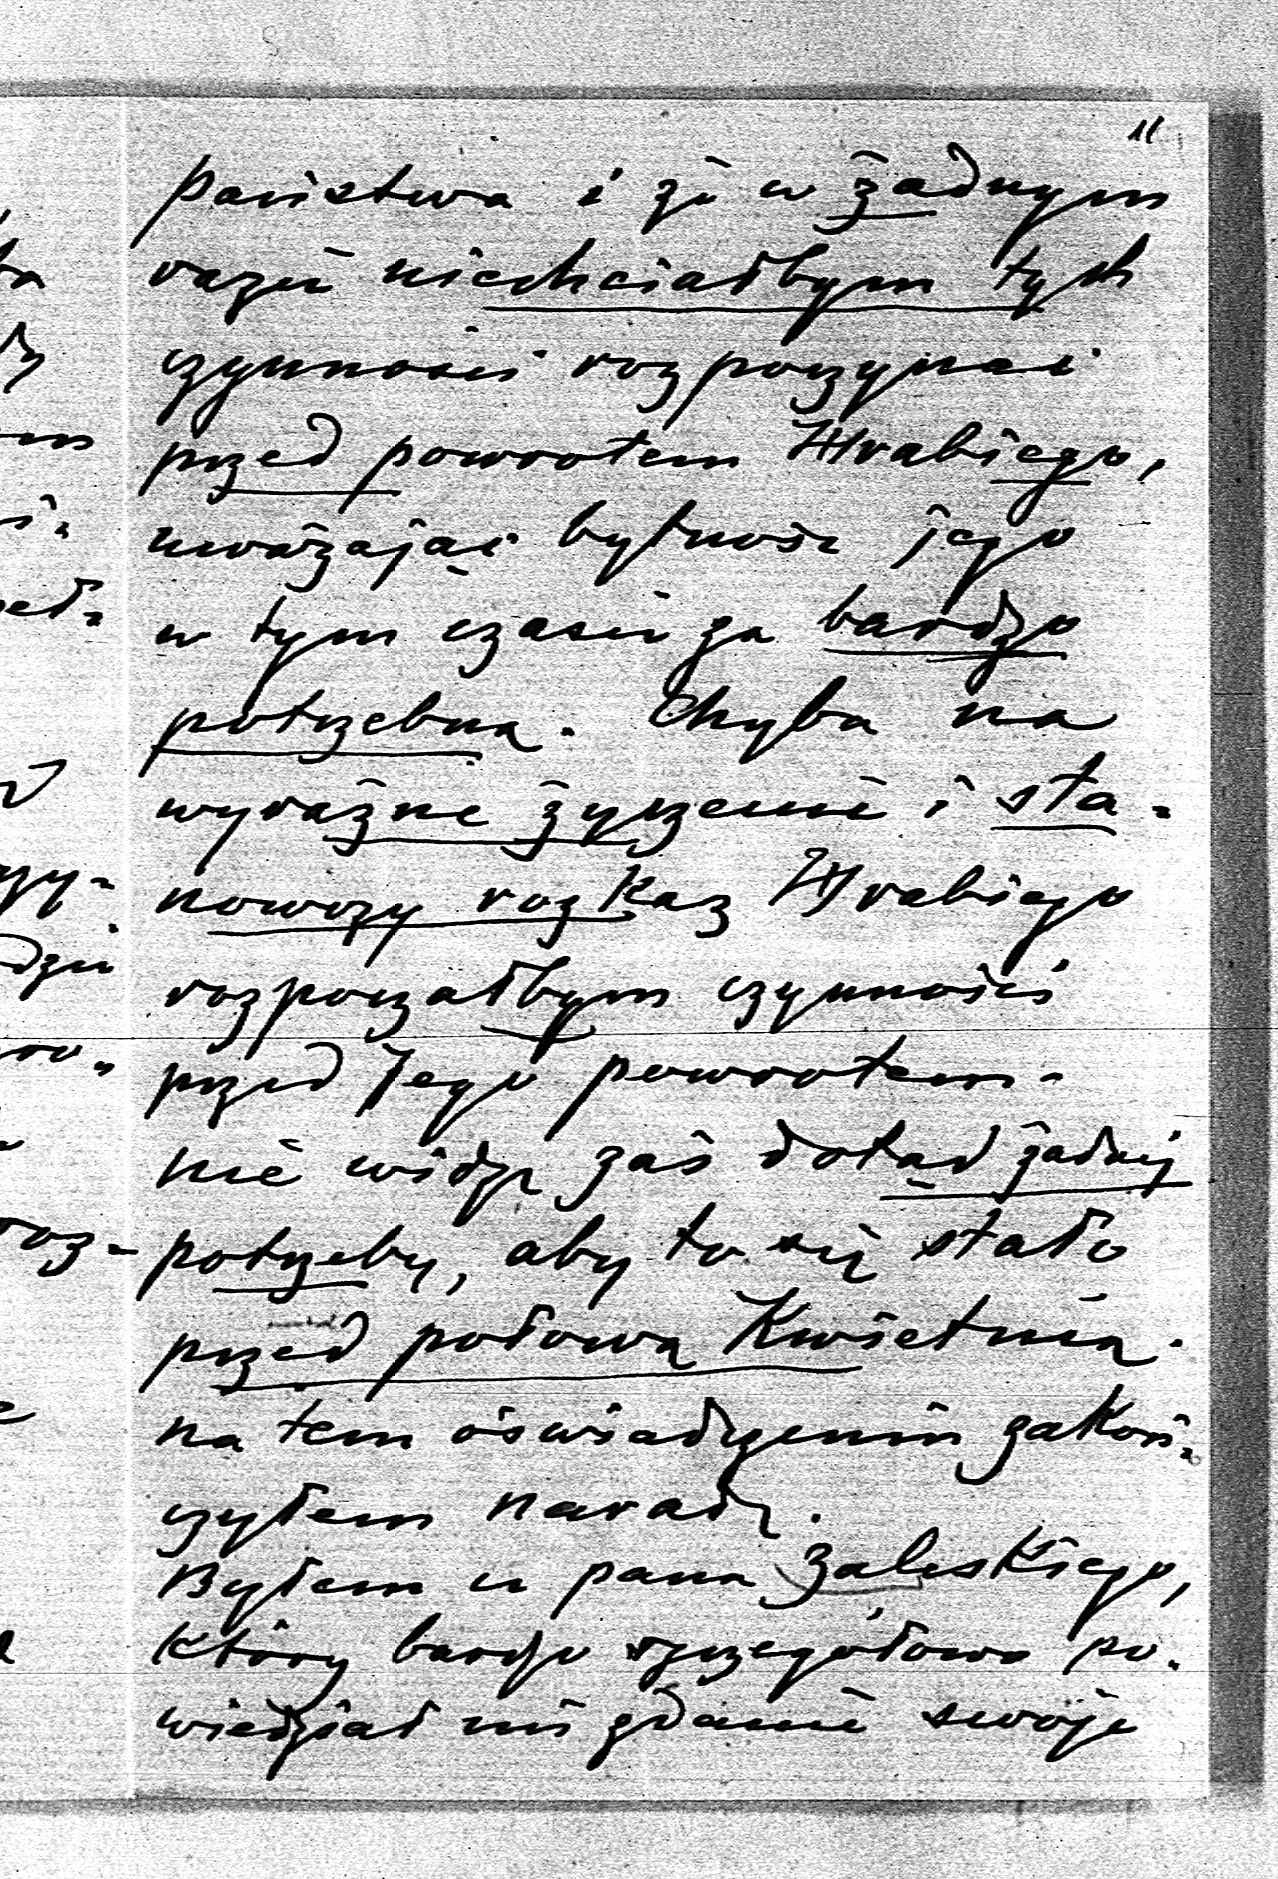 11
państwa i że w żadnym
razie niechciałbym tych
czynności rozpoczynać
przed powrotem Hrabiego,
uważając bytność jego
w tym czasie za bardzo
potrzebną. Chyba na
wyraźne życzenie i sta-
nowczy rozkaz Hrabiego
rozpocząłbym czynności
przed Jego powrotem.
nie widzę zaś dotąd żadnej
potrzeby, aby to się stało
przed połową Kwietnia.
na tem oświadczeniu zakoń-
czyłem naradę.
Byłem u pana Zaleskiego,
który bardzo szczegółowo po-
wiedział mi zdanie swoje